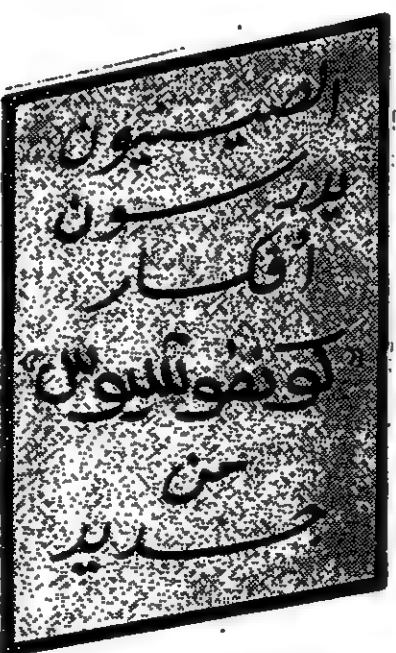 الصينيون
يدرسون
أفكار
"كونفوشيوس"
من
جديد